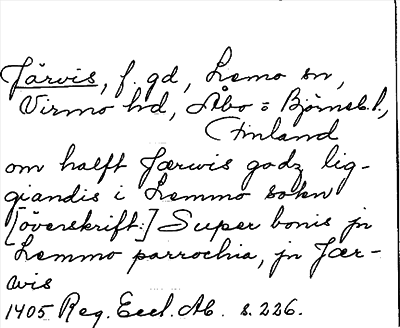 Järvis, f. gd, Lemo sn,
Virmo hd, Åbo = Björneb. l.,
Finland
om halft Jærwis godz lig-
giandis i Lemmo sokn
[överskrift:] Super bonis jn
Lemmo parrochia, jn Jær-
wis
1405 Reg. Eccl. Ab. s. 226.